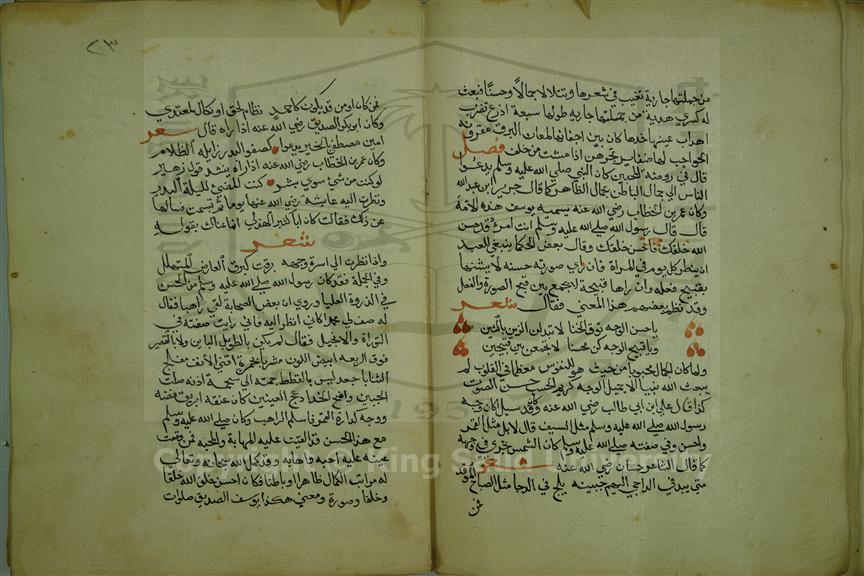 من جملتها جارية تغيب في شعرها وتتلألأ جمالا وحسنا فبعث
له كسرى هدية من جملتها جارية طولها سبعة اذرع تضرب
اهداب عينيها خدها كان بين اجفانها لمعان البرق مقرونة
الحواجب لها ضفاير تجرهن اذا مشت من خلف فصل
قال في روضة المحبين كان النبي صلى الله عليه وسلم يدعوا
الناس الى جمال الباطن بجمال الظاهر كما قال جرير ابن عبدالله
وكان عمر بن الخطاب رضي الله عنه يسميه يوسف هذه الامة
قال قال رسول الله صلى الله عليه وسلم انت امرؤ قد حسن
الله خلقك فاحسن خلقك وقال بعض الحكما ينبغي للعبد
ان ينظر كل يوم في المراة فان راى صورته حسنة لا يشينها
بقبيح فعله وان راها قبيحة لا يجمع بين قبح الصورة والفعل
وقد نظم بعضهم هذا المعنى فقال شعر
ياحسن الوجه توق الخنا لا تبدلن الزين بالشين
وياقبيح الوجه كن محسنا لا تجمعن بين قبيحين
ولما كان الجمال محبوبا من حيث هو للنفوس معظما في القلوب لم
يبعث الله نبيا الا جميل الوجه كريم الحسب حسن الصوت
كذا قال علي ابن ابي طالب رضي الله عنه وقد سيل اكان وجه
رسول الله صلى الله عليه وسلم مثل السيف قال لا بل مثل القمر
واحسن وفي صفته صلى الله عليه وسلم كان الشمس تجري في جبهته
كما قال الشاعر حسان رضي الله عنه شعر
متى يبد في الداجي البهيم جبينه يلج في الدجا مثل الصباح الموقد
فمن
٢٣
فمن كان او من قد يكون كاحمد نظام لحق او نكال لمعتدي
وكان ابو بكر الصديق رضي الله عنه اذا راه قال شعر
امين مصطفى للخير يدعوا كضو البدر زايله الظلام
وكان عمر بن الخطاب رضي الله عنه اذا راه ينشد قول زهير
لو كنت من شي سوى بشر كنت المضي لليلة البدر
ونظرت اليه عايشة رضي الله عنها يوما ثم تبسمت فسالها
عن ذلك فقالت كان ابا كبير الهذلي انما عناك بقوله
شعر
واذا نظرت الى اسرة وجهه برقت كبرق العارض المتهلل
وفي الجملة فقد كان رسول الله صلى الله عليه وسلم من الحسن
في الذروة العليا وروي ان بعض الصحابة لقي راهبا فقال
له صف لي محمدا كاني انظر اليه فاني رايت صفته في
التوراة والانجيل فقال لم يكن بالطويل الباين ولا القصير
فوق الربعة ابيض اللون مشربا بحمرة اقنى الانف مفلج
الثنايا جعد ليس بالقطط جمته الى شحمة اذنه صلت
الجبين واضح الخد ادعج العينين كان عنقه ابريق فضة
ووجه كدارة القمر فاسلم الراهب وكان صلى الله عليه وسلم
مع هذا الحسن قد القيت عليه المهابة والمحبة فمن وقعت
عينه عليه احبه وهابه وقد كمل الله سبحانه وتعالى
له مراتب الكمال ظاهرا وباطنا فكان احسن خلق الله خلقا
وخلقا وصورة ومعنى هكذا يوسف الصديق صلوات
Copyright © King Saud University
195